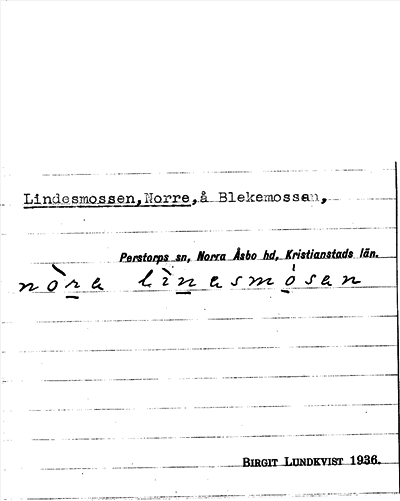 Lindesmossen, Norre, å Blekemossen,
Perstorps sn, Norra Åsbo hd, Kristianstads län.
nòra lìnasmósan
BIRGIT LUNDKVIST 1936.